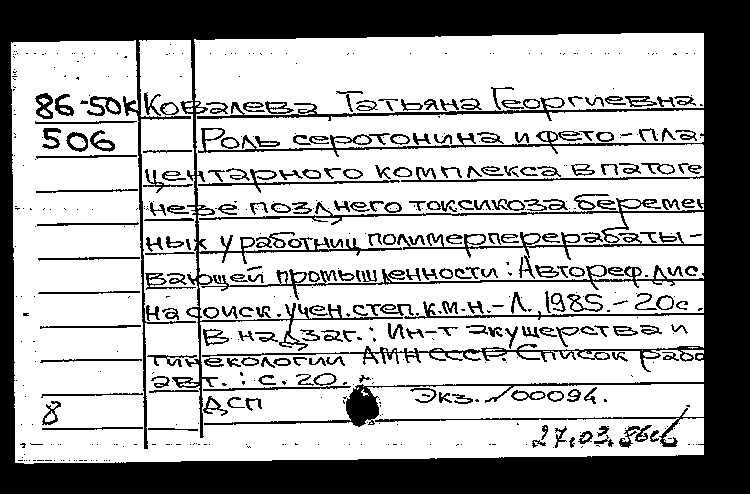 86-50к Ковалева, Татьяна Георгиевна.
506 Роль серотонина и фето-пла-
центарного комплекса в патоге
незе позднего токсикоза беремен
ных у работниц полимерперерабаты-
вающей промышленности: Автореф. дис.
на соиск. учен. степ. к.м.н.-Л., 1985.-20с.
В надзаг.: Ин-т акушерства и
гинекологии АМН СССР. Список рабо
авт.: с. 20.
ДСП Экз. №00094.
8
27.03.86